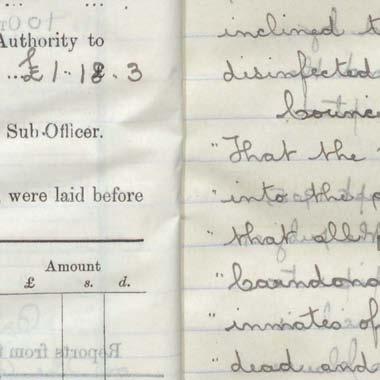 Authority to
£1.12.3
Sub-Officer.
were laid before
Amount
£ s. d.
Reports from t
inclined t
disinfected
Counc
"That the
"into the p
"that all
"
"inmates of
"dead and